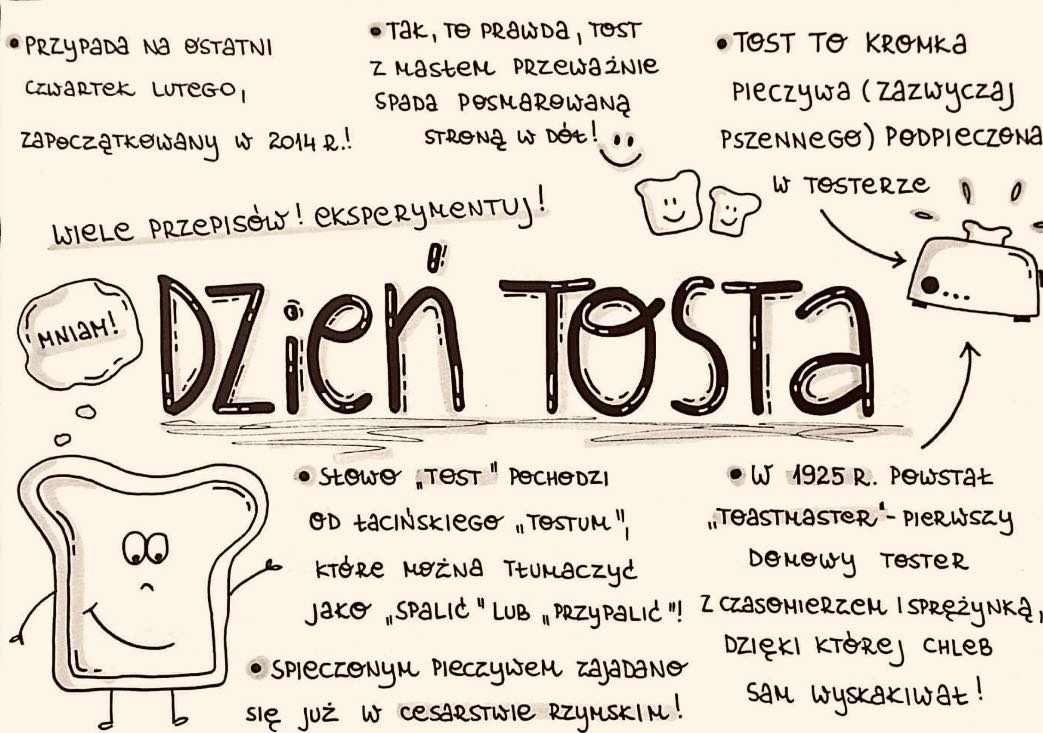 • PRZYPADA NA OSTATNI
CZWARTEK LUTEGO,
ZAPOCZĄTKOWANY W 2014 R.!
• TAK, TO PRAWDA, TOST
Z MASŁEM PRZEWAŻNIE
SPADA POSMAROWANĄ
STRONĄ W DÓŁ!
• TOST TO KROMKA
PIECZYWA (ZAZWYCZAJ
PSZENNEGO) PODPIECZONA
W TOSTERZE
WIELE PRZEPISÓW! EKSPERYMENTUJ!
DZIEŃ TOSTA
MNIAM!
• SŁOWO „TOST" POCHODZI
OD ŁACIŃSKIEGO „TOSTUM",
KTÓRE MOŻNA TŁUMACZYĆ
JAKO „SPALIĆ" LUB „PRZYPALIĆ"!
• SPIECZONYM PIECZYWEM ZAJADANO
SIĘ JUŻ W CESARSTWIE RZYMSKIM!
• W 1925 R. POWSTAŁ
„TOASTMASTER"- PIERWSZY
DOMOWY TOSTER
Z CZASOMIERZEM I SPRĘŻYNKĄ,
DZIĘKI KTÓREJ CHLEB
SAM WYSKAKIWAŁ!